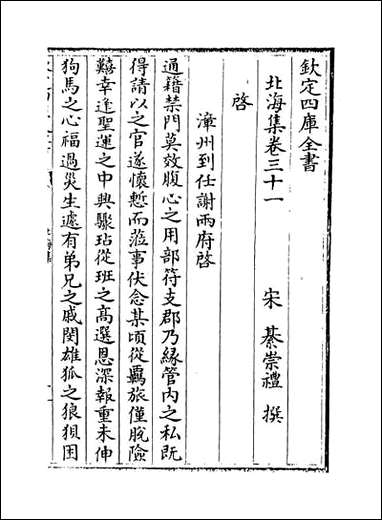 欽定四庫全書
北海集卷三十一
宋 綦崇禮 撰
啓
漳州到任謝兩府啓
通籍禁門莫效腹心之用部符支郡乃緣管內之私既
得請以之官遂懷慙而蒞事伏念某頃從羈旅僅脫險
囏幸逢聖運之中興驟玷從班之高選恩深報重未伸
狗馬之心福過災生遽有弟兄之戚閔雄狐之狼狽困